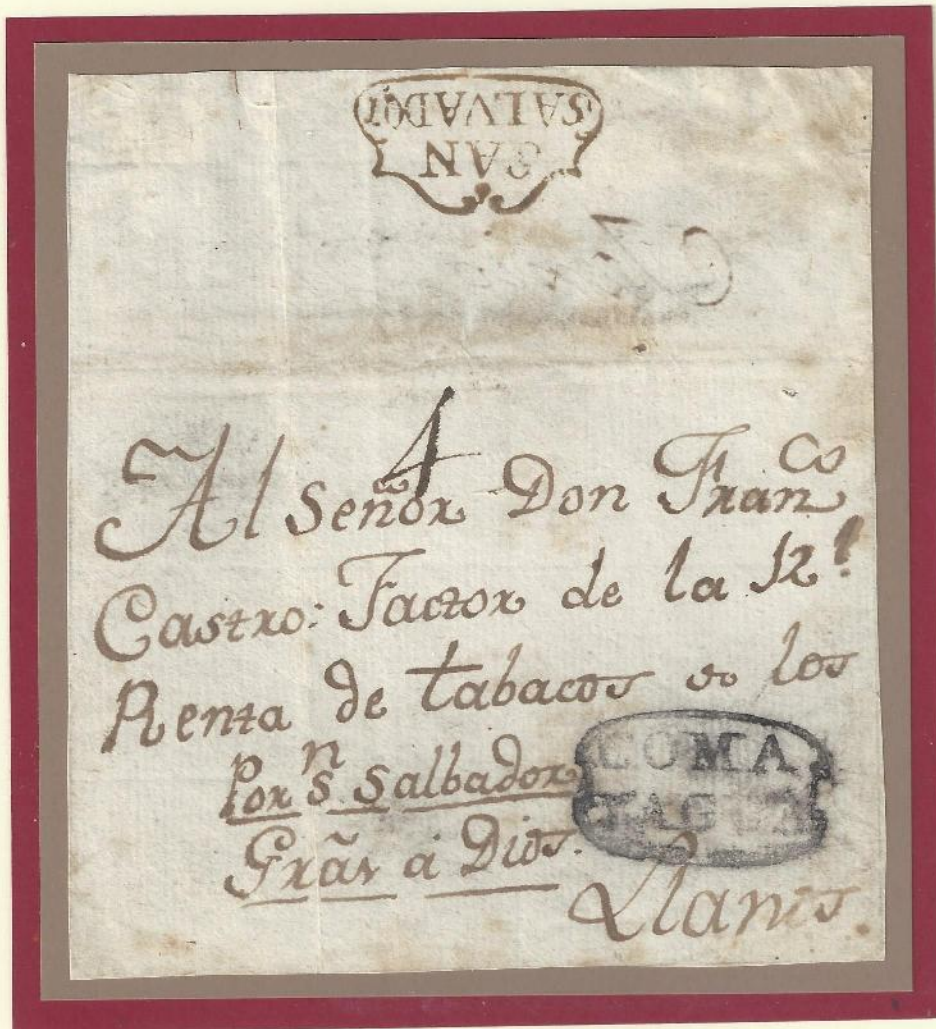 SAN
SALVADOR
4
Al Señor Don Fran^co
Castro: Factor de la R^l
Renta de tabacos en los
Por S^n Salbador
Grãs a Dios.
COMA
YAGUA
Llanos